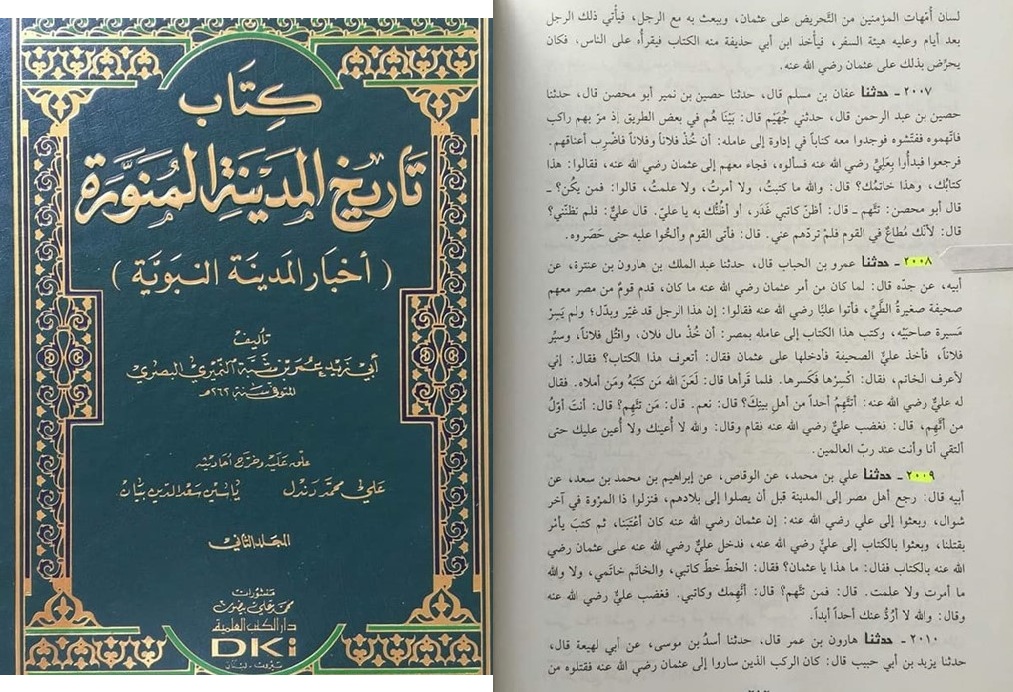 كتاب
تاريخ المدينة المنورة
( أخبار المدينة النبوية )
تأليف
أبي زيد عمر بن شبة النميري البصري
المتوفى سنة ٢٦٢هـ
علق عليه وخرج أحاديثه
علي محمد دندل ياسين سعد الدين بيان
المجلد الثاني
منشورات
محمد علي بيضون
دار الكتب العلمية
DKi
بيروت - لبنان
لسان أُمّهات المؤمنين من التَّحريض على عثمان، ويبعث به مع الرجل، فيأتي ذلك الرجل
بعد أيام وعليه هيئة السفر، فيأخذ ابن أبي حذيفة منه الكتاب فيقرأُه على الناس. فكان
يحرِّض بذلك على عثمان رضي الله عنه.
٢٠٠٧ - حدثنا عفان بن مسلم قال، حدثنا حصين بن نمير أبو محصن قال، حدثنا
حصين بن عبد الرحمن قال، حدثني جُهَيْم قال: بَيْنَا هُم في بعض الطريق إذ مرّ بهم راكب
فاتّهموه ففتّشوه فوجدوا معه كتاباً في إداوة إلى عامله: أن خُذْ فلاناً وفلاناً فاضْرب أعناقهم.
فرجعوا فبدأُوا بِعَلِيٍّ رضي الله عنه فسألوه، فجاء معهم إلى عثمان رضي الله عنه، فقالوا: هذا
كتابُك، وهذا خاتمُك؟ قال: والله ما كتبتُ، ولا أمرتُ، ولا علمتُ، قالوا: فمن يكُن؟ -
قال أبو محصن: تتَّهم - قال: أظنّ كاتبي غَدَر، أو أظُنُّك به يا عليّ. قال عليٌّ: فلم تظنّني؟
قال: لأنّك مُطاعٌ في القوم فلمْ تردّهم عني. قال: فأتى القوم وألحُوا عليه حتى حَصَروه.
٢٠٠٨ - حدثنا عمرو بن الحباب قال، حدثنا عبد الملك بن هارون بن عنترة، عن
أبيه، عن جدّه قال: لما كان من أمر عثمان رضي الله عنه ما كان، قدم قومٌ من مصر معهم
صحيفة صغيرةُ الطَّيّ، فأتوا عليّا رضي الله عنه فقالوا: إن هذا الرجل قد غيّر وبدّل؛ ولم يَسِرْ
مَسيرة صاحبَيْه، وكتب هذا الكتاب إلى عامله بمصر: أن خُذْ مال فلان، واقتُل فلاناً، وسيِّر
فلاناً، فأخذ عليٌّ الصحيفة فأدخلها على عثمان فقال: أتعرف هذا الكتاب؟ فقال: إني
لأعرف الخاتم، فقال: اكْسِرْها فكَسرها. فلما قرأها قال: لَعَنَ الله مَن كَتَبَهُ ومَن أملاه. فقال
له عليٌّ رضي الله عنه: أتتّهِمُ أحداً من أهل بيتِكَ؟ قال: نعم. قال: مَن تتَّهِم؟ قال: أنتَ أوّلُ
من أتَّهم، قال: فغضب عليٌّ رضي الله عنه فقام وقال: والله لا أُعينك ولا أُعين عليك حتى
ألتقي أنا وأنت عند ربّ العالمين.
٢٠٠٩ - حدثنا علي بن محمد، عن الوقاص، عن إبراهيم بن محمد بن سعد، عن
أبيه قال: رجع أهل مصر إلى المدينة قبل أن يصلوا إلى بلادهم، فنزلوا ذا المرْوة في آخر
شوال، وبعثوا إلى علي رضي الله عنه: إن عثمان رضي الله عنه كان أعْتَبَنا، ثم كتبَ يأمُر
بقتلنا، وبعثوا بالكتاب إلى عليٍّ رضي الله عنه، فدخل عليٌّ رضي الله عنه على عثمان رضي
الله عنه بالكتاب فقال: ما هذا يا عثمان؟ فقال: الخطّ خطّ كاتبي، والخاتَم خاتَمي، ولا والله
ما أمرت ولا علمت. قال: فمن تتَّهم؟ قال: أتَّهِمك وكاتبي. فغضب عليٌّ رضي الله عنه
وقال: والله لا أرُدُّ عنك أحداً أبداً.
٢٠١٠ - حدثنا هارون بن عمر قال، حدثنا أسدُ بن موسى، عن أبي لهيعة قال،
حدثنا يزيد بن أبي حبيب قال: كان الركب الذين ساروا إلى عثمان رضي الله عنه فقتلوه من